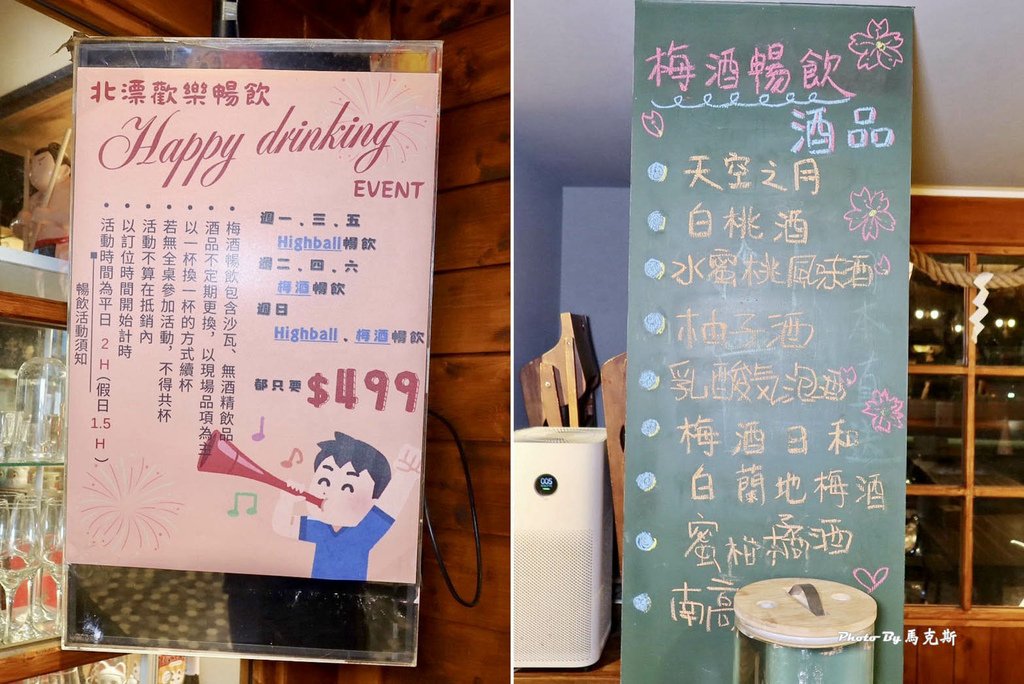 北漂歡樂暢飲
Happy drinking
EVENT
週一、三、五
Highball暢飲
週二、四、六
梅酒暢飲
週日
Highball、梅酒暢飲
都只要
$499
梅酒暢飲包含沙瓦、無酒精飲品
酒品不定期更換，以現場品項為主
以一杯換一杯的方式續杯
若無全桌參加活動，不得共杯
活動不算在抵銷內
以訂位時間開始計時
活動時間為平日 2H(假日1.5H)
暢飲活動須知
梅酒暢飲
酒品
天空之月
白桃酒
水蜜桃風味酒
柚子酒
乳酸気泡酒
梅酒日和
白蘭地梅酒
蜜柑橘酒
南高
005
Photo By 馬克斯